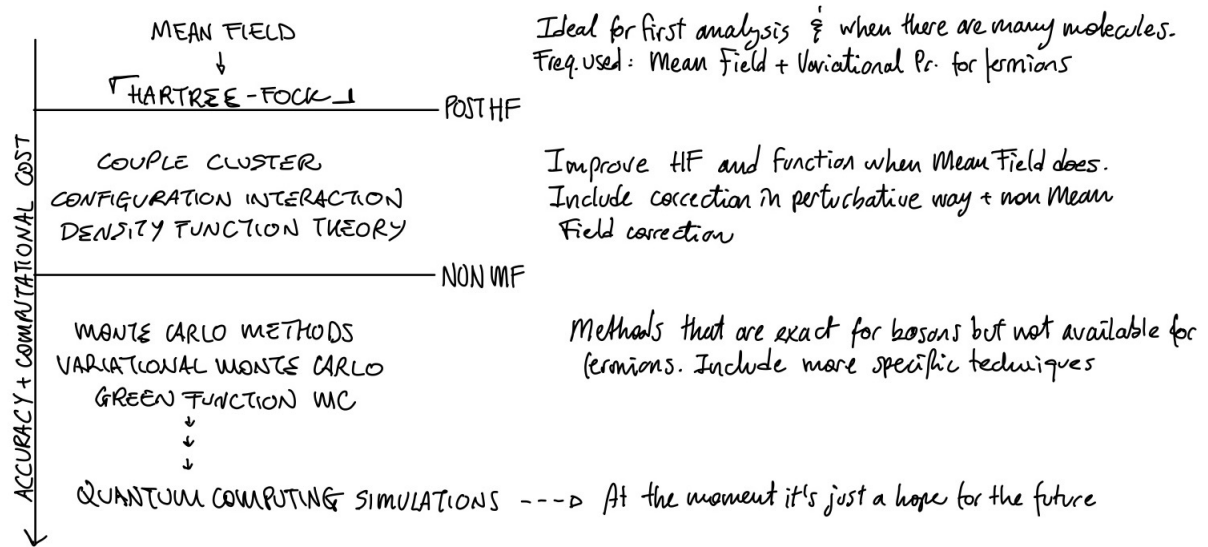 MEAN FIELD
↓
HARTREE-FOCK
POST HF
Ideal for first analysis & when there are many molecules.
Freq. used: Mean Field + Variational Pr. for fermions
COUPLE CLUSTER
CONFIGURATION INTERACTION
DENSITY FUNCTION THEORY
Improve HF and function when Mean Field does.
Include correction in perturbative way + non Mean
Field correction
NON MF
MONTE CARLO METHODS
VARIATIONAL MONTE CARLO
GREEN FUNCTION MC
Methods that are exact for bosons but not available for
fermions. Include more specific techniques
↓
↓
↓
QUANTUM COMPUTING SIMULATIONS ---> At the moment it's just a hope for the future
ACCURACY + COMPUTATIONAL COST